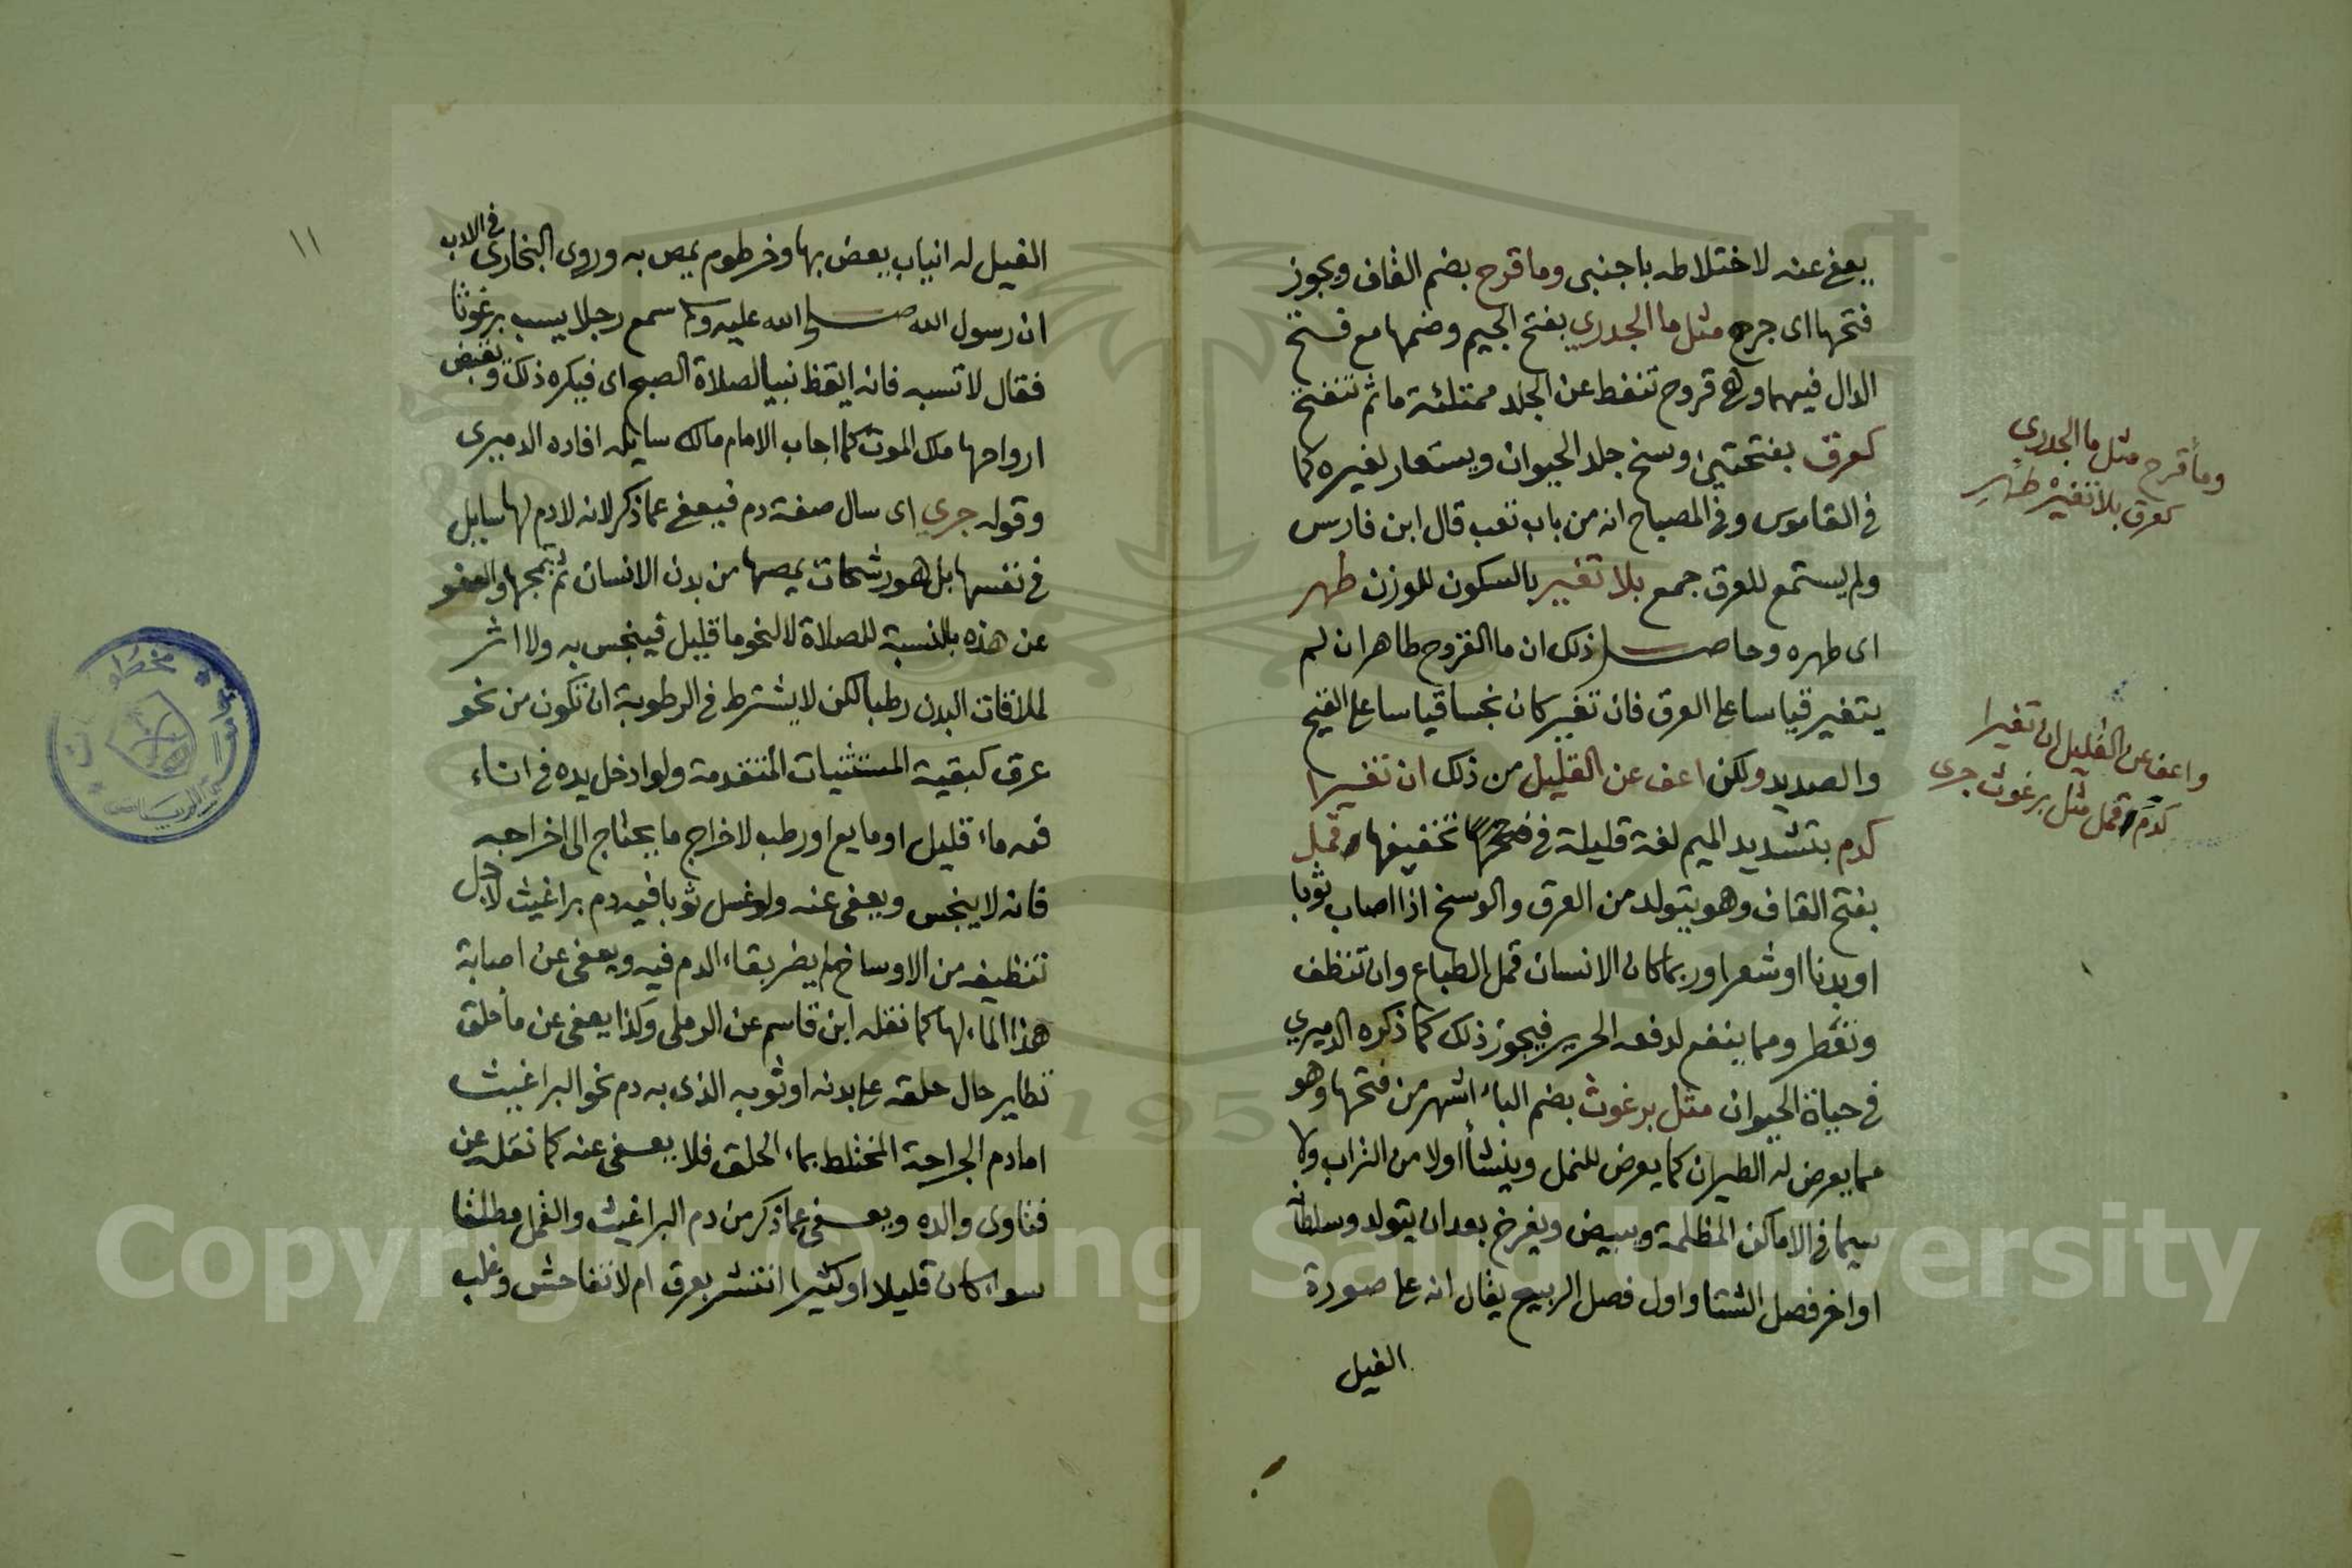 يعفى عنه لاختلاطه باجنبى وما قرح بضم القاف ويجوز
فتحها اى جرح مثل ما الجدري بفتح الجيم وضمها مع فتح
الدال فيهما وهى قروح تنفط عن الجلد ممتلئة ما ثم تنفتح
كعرق بفتحتين وسخ جلد الحيوان ويستعار لغيره كما
فى القاموس وفى المصباح انه من باب تعب قال ابن فارس
ولم يستمع للعرق جمع بلا تغيير بالسكون للوزن طهر
اى طهره وحاصل ذلك ان ما القروح طاهر ان لم
يتغير قياسا على العرق فان تغير كان نجسا قياسا على القيح
والصديد ولكن اعف عن القليل من ذلك ان تغيرا
كدم بتشديد الميم لغة قليلة فى تخفيفها وقمل
بفتح القاف وهو يتولد من العرق والوسخ اذا اصاب ثوبا
او بدنا او شعرا وربما كان الانسان قمل الطباع وان تنظف
وتعطر ومما ينفع لدفعه الحرير فيجوز ذلك كما ذكره الدميري
فى حياة الحيوان مثل برغوث بضم الباء اشهر من فتحها وهو
مما يعرض له الطيران كما يعرض للنمل وينشأ اولا من التراب ولا
سيما فى الاماكن المظلمة ويبيض ويفرخ بعد ان يتولد وسلطانه
اواخر فصل الشتا واول فصل الربيع يقال انه على صورة
الفيل
وما قرح مثل ما الجدري
كعرق بلا تغيره طهر
واعف عن القليل ان تغيرا
كدم وقمل مثل برغوث جرى
١١
الفيل له انياب يعض بها وخرطوم يمص به وروى البخارى فى الادب
ان رسول الله صلى الله عليه وسلم سمع رجلا يسب برغوثا
فقال لا تسبه فانه ايقظ نبيا لصلاة الصبح اى فيكره ذلك ويقبض
ارواحها ملك الموت كما اجاب الامام مالك سايله افاده الدميرى
وقوله جري اى سال صفة دم فيعفى عما ذكر لانه لا دم لها سايل
فى نفسها بل هو رشحات يمصها من بدن الانسان ثم يمجها والعفو
عن هذه بالنسبة للصلاة لا لنحو ما قليل فينجس به ولا اثر
لملاقات البدن رطبا لكن لا يشترط فى الرطوبة ان تكون من نحو
عرق كبقية المستثنيات المتقدمة ولو ادخل يده فى اناء
فيه ماء قليل او مايع او رطب لاخراج ما يحتاج الى اخراجه
فانه لا ينجس ويعفى عنه ولو غسل ثوبا فيه دم براغيث لاجل
تنظيفه من الاوساخ لم يضر بقاء الدم فيه ويعفى عن اصابة
هذا الماء لها كما نقله ابن قاسم عن الرملى وكذا يعفى عن ما حلق
تطاير حال حلقه على بدنه او ثوبه الذى به دم نحو البراغيث
اما دم الجراحة المختلط بماء الحلق فلا يعفى عنه كما نقله عن
فتاوى والده ويعفى عما ذكر من دم البراغيث والقمل مطلقا
سوا كان قليلا او كثيرا انتشر بعرق ام لا تفاحش وغلب
Copyright © King Saud University
1957